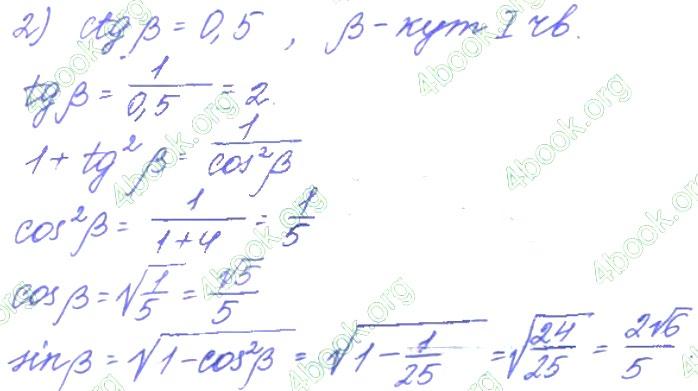 2) ctgβ = 0,5 , β - кут I чв.
tgβ = 1/0,5 = 2.
1 + tg²β = 1/cos²β
cos²β = 1/(1+4) = 1/5
cosβ = √(1/5) = √5/5
sinβ = √(1-cos²β) = √(1 - 1/25) = √(24/25) = 2√6/5
4book.org
4book.org
4book.org
4book.org
4book.org
4book.org
4book.org